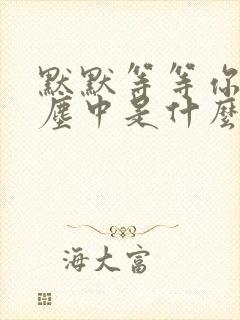 默默等等你
塵中是什麼
海大富